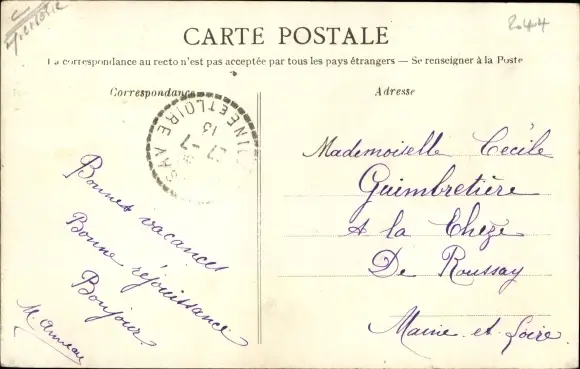 2044
CARTE POSTALE
La correspondance au recto n'est pas acceptée par tous les pays étrangers — Se renseigner à la Poste
Correspondance
Adresse
Bonnes vacances
Bonne réjouissance
Bonjour
M.
Mademoiselle Cécile
Guimbretière
A la Chèze
De Roussay
Maine et Loire
ET LOIRE
13